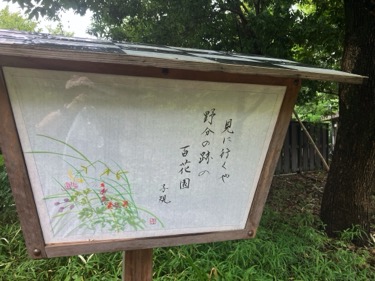 見に行くや
野分の跡の
百花園
子規